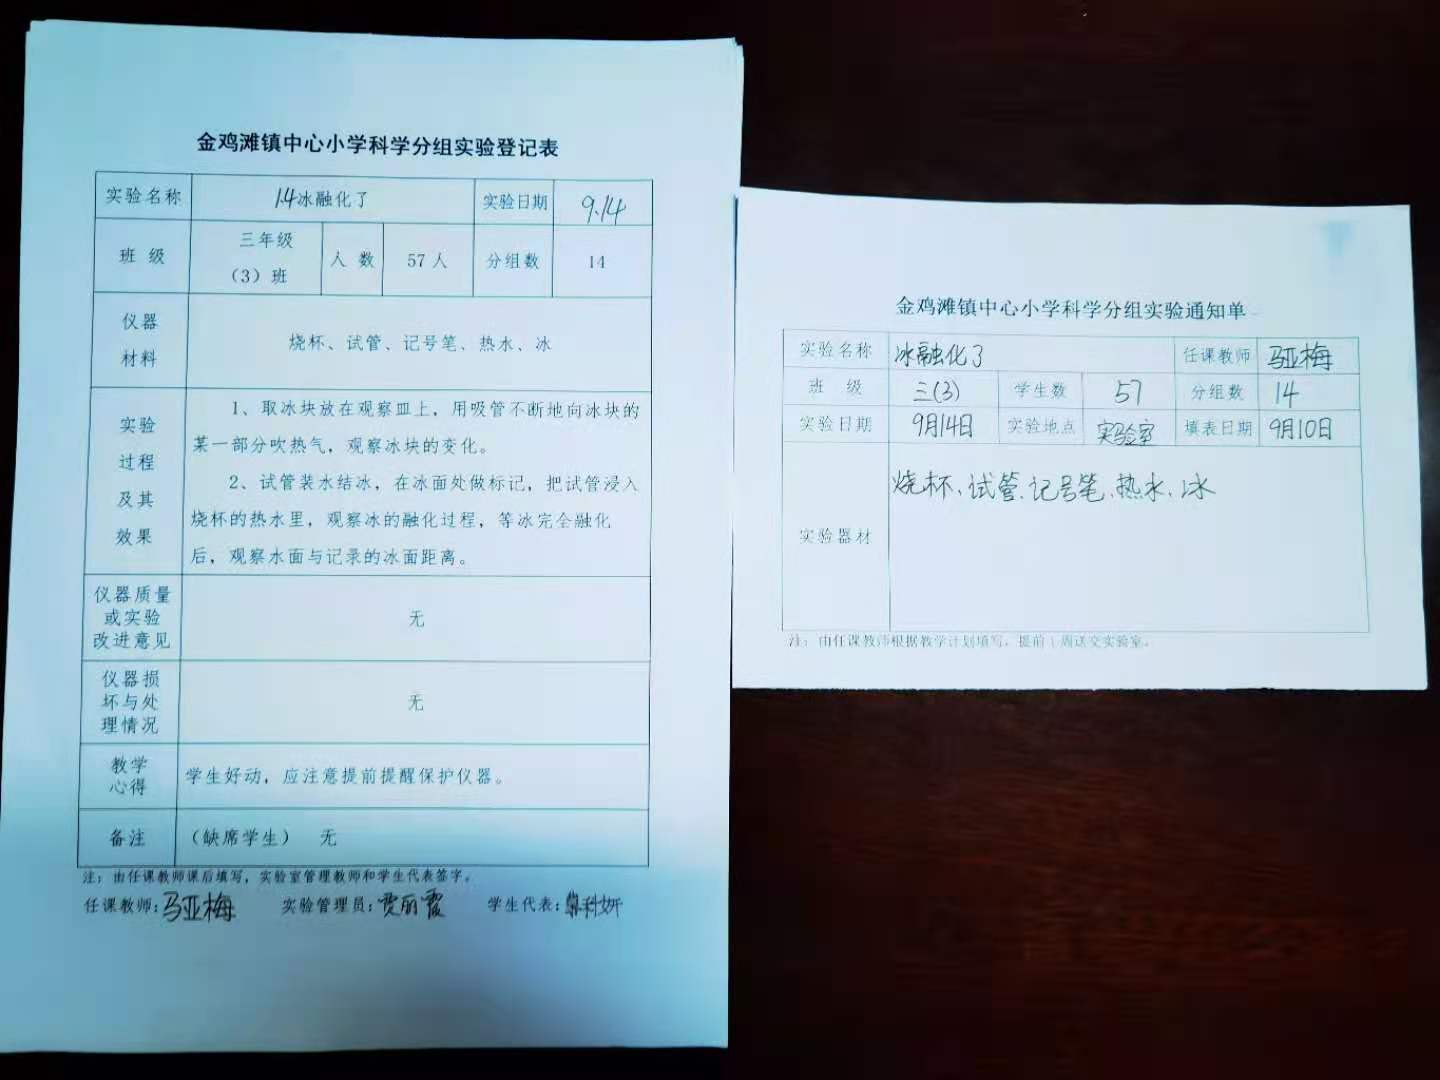 金鸡滩镇中心小学科学分组实验登记表
实验名称 1.4冰融化了 实验日期 9.14
班 级 三年级（3）班 人 数 57人 分组数 14
仪器材料 烧杯、试管、记号笔、热水、冰
实验过程及其效果
1、取冰块放在观察皿上，用吸管不断地向冰块的
某一部分吹热气，观察冰块的变化。
2、试管装水结冰，在冰面处做标记，把试管浸入
烧杯的热水里，观察冰的融化过程，等冰完全融化
后，观察水面与记录的冰面距离。
仪器质量或实验改进意见 无
仪器损坏与处理情况 无
教学心得 学生好动，应注意提前提醒保护仪器。
备注 （缺席学生） 无
注：由任课教师课后填写，实验室管理教师和学生代表签字。
任课教师：马亚梅 实验管理员：贾丽霞 学生代表：科妍
金鸡滩镇中心小学科学分组实验通知单
实验名称 冰融化了 任课教师 马亚梅
班 级 三(3) 学生数 57 分组数 14
实验日期 9月14日 实验地点 实验室 填表日期 9月10日
实验器材 烧杯、试管、记号笔、热水、冰
注：由任课教师根据教学计划填写，提前1周送交实验室。